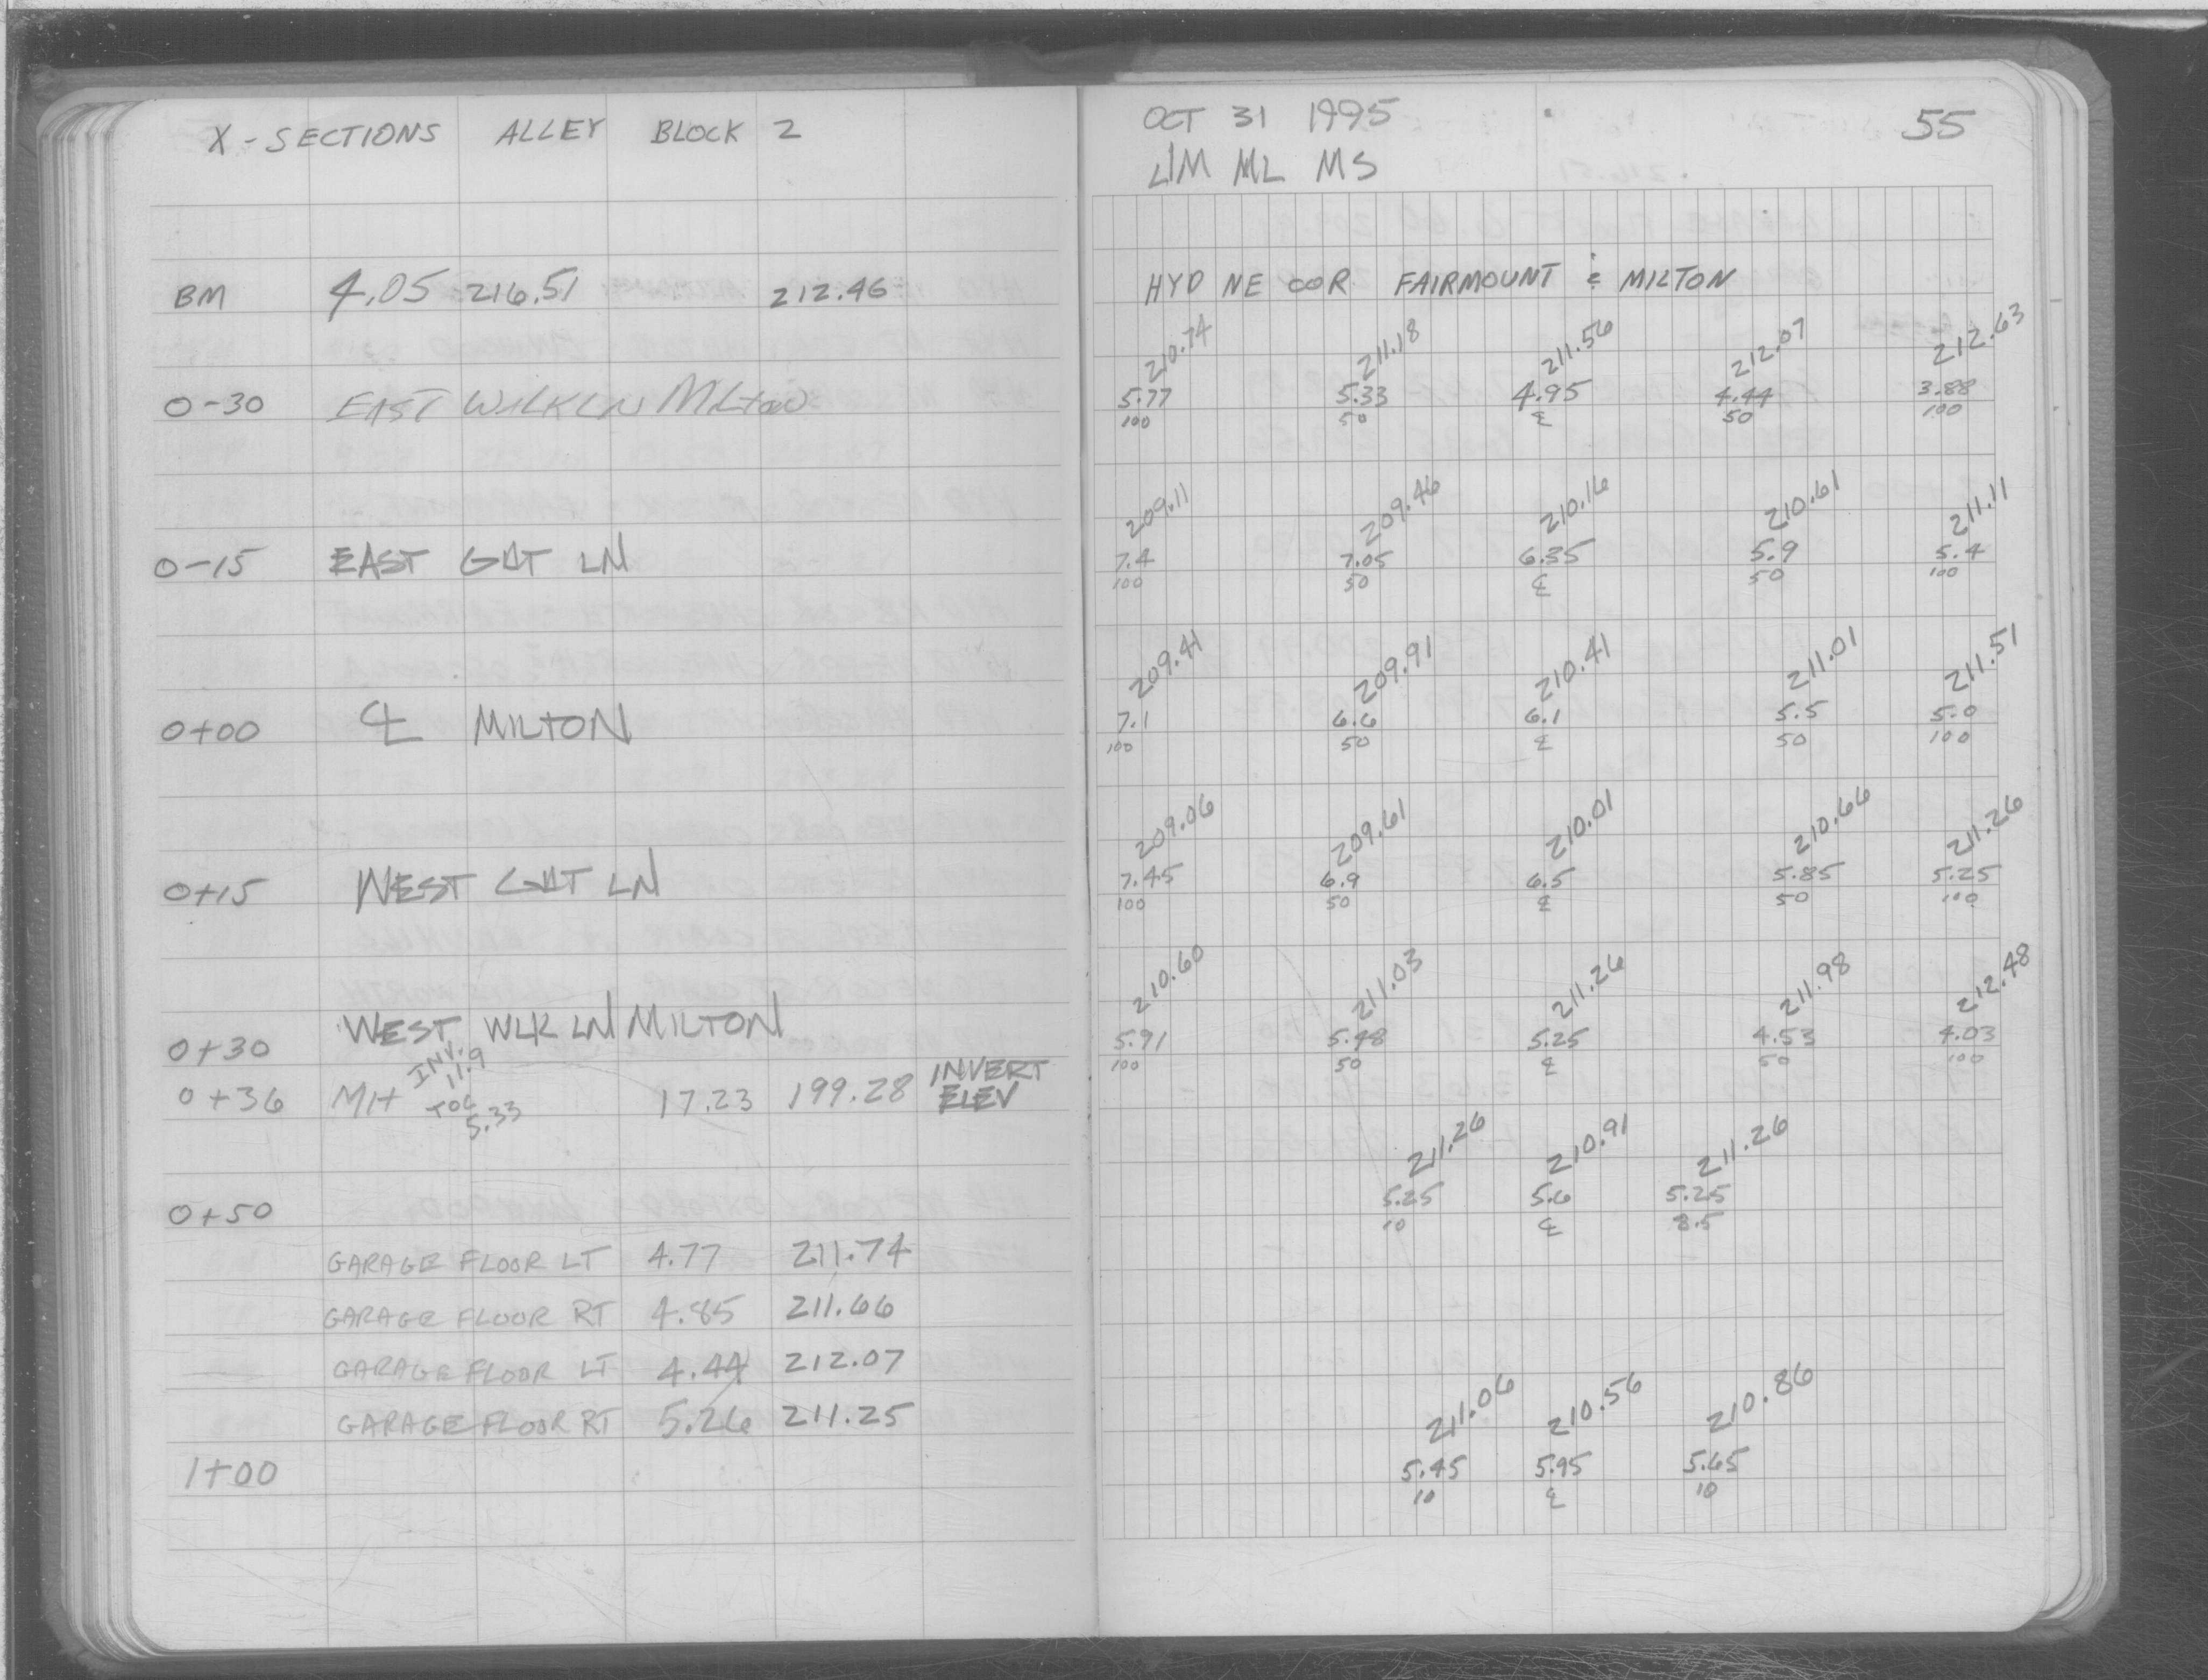 X-SECTIONS ALLEY BLOCK 2
BM 4.05 216.51 212.46
0-30 EAST WLKLN MILTON
0-15 EAST GUT LN
0+00 ℄ MILTON
0+15 WEST GUT LN
0+30 WEST WLK LN MILTON
0+36 MH INV. 11.9 TOC 5.33 17.23 199.28 INVERT ELEV
0+50
GARAGE FLOOR LT 4.77 211.74
GARAGE FLOOR RT 4.85 211.66
GARAGE FLOOR LT 4.44 212.07
GARAGE FLOOR RT 5.26 211.25
1+00
OCT 31 1995 55
JM ML MS
HYD NE COR FAIRMOUNT & MILTON
210.74 211.18 211.56 212.07 212.63
5.77 5.33 4.95 4.44 3.88
100 50 ℄ 50 100
209.11 209.46 210.16 210.61 211.11
7.4 7.05 6.35 5.9 5.4
100 50 ℄ 50 100
209.41 209.91 210.41 211.01 211.51
7.1 6.6 6.1 5.5 5.0
100 50 ℄ 50 100
209.06 209.61 210.01 210.66 211.26
7.45 6.9 6.5 5.85 5.25
100 50 ℄ 50 100
210.60 211.03 211.26 211.98 212.48
5.91 5.48 5.25 4.53 4.03
100 50 ℄ 50 100
211.26 210.91 211.26
5.25 5.6 5.25
10 ℄ 8.5
211.06 210.56 210.86
5.45 5.95 5.65
10 ℄ 10